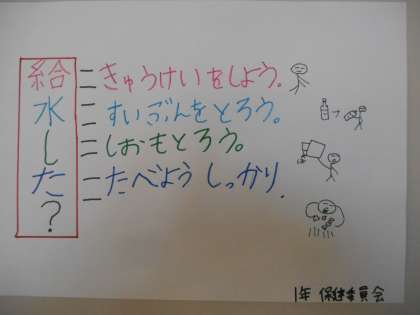 給＝きゅうけいをしよう。
水＝すいぶんをとろう。
し＝しおもとろう。
た＝たべようしっかり.
？
1年 保健委員会